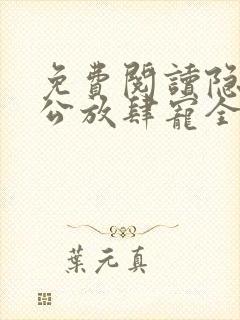 免費閱讀隐
公放肆寵全
葉元真